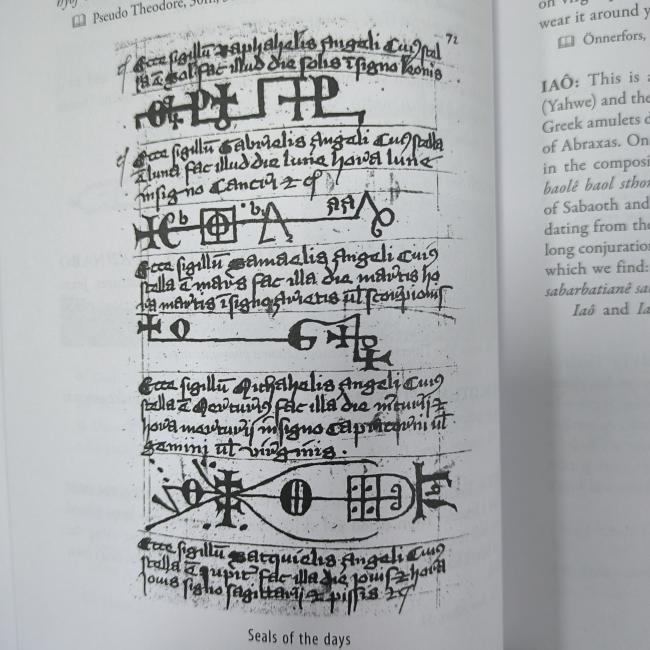 Pseudo Theodore,
72
Ecce sigillū Raphahelis Angeli Cuiꝰ stel
la ē Sol fac illud die solis ī signo leonis
Ecce sigillū Gabrielis Angeli Cuiꝰ stella
ē luna fac illud die lune hora lune
in signo Cancri ⁊ cꝰ
Ecce sigillū Samaelis Angeli Cuiꝰ
stella ē mars fac illa die martis ho
ra martis ī signo Arietis ul scorpionis
Ecce sigillū Michahelis Angeli Cuiꝰ
stella ē Mercuriꝰ fac illa die mercurij ⁊
hora mercurij in signo Capricorni ul
Gemini ul virginis.
Ecce sigillū Satquielis Angeli Cuiꝰ
stella ē Jupitꝰ fac illa die jouis ⁊ hora
jouis signo sagittarij ⁊ piscis
Seals of the days
wear it around y
Önnerfors,
IAÔ: This is a
(Yahwe) and the
Greek amulets d
of Abraxas. On
in the composi
baolê baol sthor
of Sabaoth and
dating from the
long conjuratio
which we find:
sabarbatianê sa
Iaô and Ia